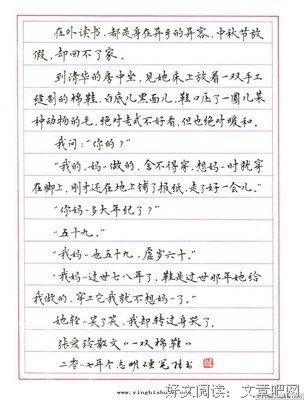 在外读书，都是身在异乡的异客，中秋节放
假，却回不了家。
到清华的房中坐，见她床上放着一双手工
缝制的棉鞋，白底儿黑面儿，鞋口压了一圈儿某
种动物的毛，绝对老式不好看，但也绝对暖和。
我问：“你的？”
“我的，妈-做的，舍不得穿，想妈-时就穿
在脚上，刚才还在地上铺了报纸，走了好一会儿。”
“你妈-多大年纪了？”
“五十九。”
“我妈-也五十九，虚岁六十。”
“我妈-过世七八年了，鞋是过世那年她给
我做的，穿上它我就不想妈-了。”
她轻-笑了笑，我却转过身哭了。
张爱玲散文《一双棉鞋》
二零一七年冬志明硬笔恭书
www.yingbishu
好文阅读：文章吧网